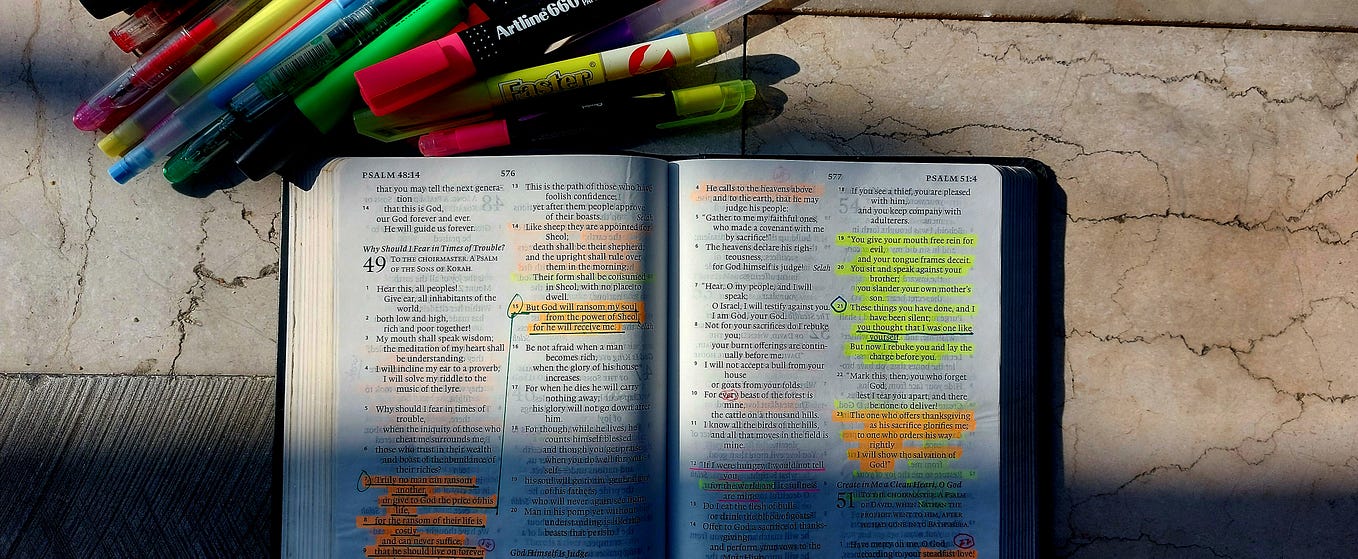 Artline 660
Faster
PSALM 48:14
576
that you may tell the next genera-
tion
14 that this is God,
our God forever and ever.
He will guide us forever.
Why Should I Fear in Times of Trouble?
49 TO THE CHOIRMASTER. A PSALM
OF THE SONS OF KORAH.
1 Hear this, all peoples!
Give ear, all inhabitants of the
world,
2 both low and high,
rich and poor together!
3 My mouth shall speak wisdom;
the meditation of my heart shall
be understanding.
4 I will incline my ear to a proverb;
I will solve my riddle to the
music of the lyre.
5 Why should I fear in times of
trouble,
when the iniquity of those who
cheat me surrounds me,
6 those who trust in their wealth
and boast of the abundance of
their riches?
7 Truly no man can ransom
another,
or give to God the price of his
life,
8 for the ransom of their life is
costly
and can never suffice,
9 that he should live on forever
13 This is the path of those who have
foolish confidence;
yet after them people approve
of their boasts. Selah
14 Like sheep they are appointed for
Sheol;
death shall be their shepherd,
and the upright shall rule over
them in the morning.
Their form shall be consumed
in Sheol, with no place to
dwell.
15 But God will ransom my soul
from the power of Sheol,
for he will receive me. Selah
16 Be not afraid when a man
becomes rich,
when the glory of his house
increases.
17 For when he dies he will carry
nothing away;
his glory will not go down after
him.
18 For though, while he lives, he
counts himself blessed
—and though you get praise
when you do well for your-
self—
19 his soul will go to the generation
of his fathers,
who will never again see light.
20 Man in his pomp yet without
understanding is like the
beasts that perish.
God Himself Is Judge
577
PSALM 51:4
4 He calls to the heavens above
and to the earth, that he may
judge his people:
5 "Gather to me my faithful ones,
who made a covenant with me
by sacrifice!"
6 The heavens declare his righ-
teousness,
for God himself is judge! Selah
7 "Hear, O my people, and I will
speak;
O Israel, I will testify against you.
I am God, your God.
8 Not for your sacrifices do I rebuke
you;
your burnt offerings are contin-
ually before me.
9 I will not accept a bull from your
house
or goats from your folds.
10 For every beast of the forest is
mine,
the cattle on a thousand hills.
11 I know all the birds of the hills,
and all that moves in the field is
mine.
12 "If I were hungry, I would not tell
you,
for the world and its fullness
are mine.
13 Do I eat the flesh of bulls
or drink the blood of goats?
14 Offer to God a sacrifice of thanks-
giving,
and perform your vows to the
18 If you see a thief, you are pleased
with him,
and you keep company with
adulterers.
19 "You give your mouth free rein for
evil,
and your tongue frames deceit.
20 You sit and speak against your
brother;
you slander your own mother's
son.
21 These things you have done, and I
have been silent;
you thought that I was one like
yourself.
But now I rebuke you and lay the
charge before you.
22 "Mark this, then, you who forget
God,
lest I tear you apart, and there
be none to deliver!
23 The one who offers thanksgiving
as his sacrifice glorifies me;
to one who orders his way
rightly
I will show the salvation of
God!"
Create in Me a Clean Heart, O God
51 TO THE CHOIRMASTER. A PSALM
OF DAVID, WHEN NATHAN THE
PROPHET WENT TO HIM, AFTER
HE HAD GONE IN TO BATHSHEBA.
1 Have mercy on me, O God,
according to your steadfast love;